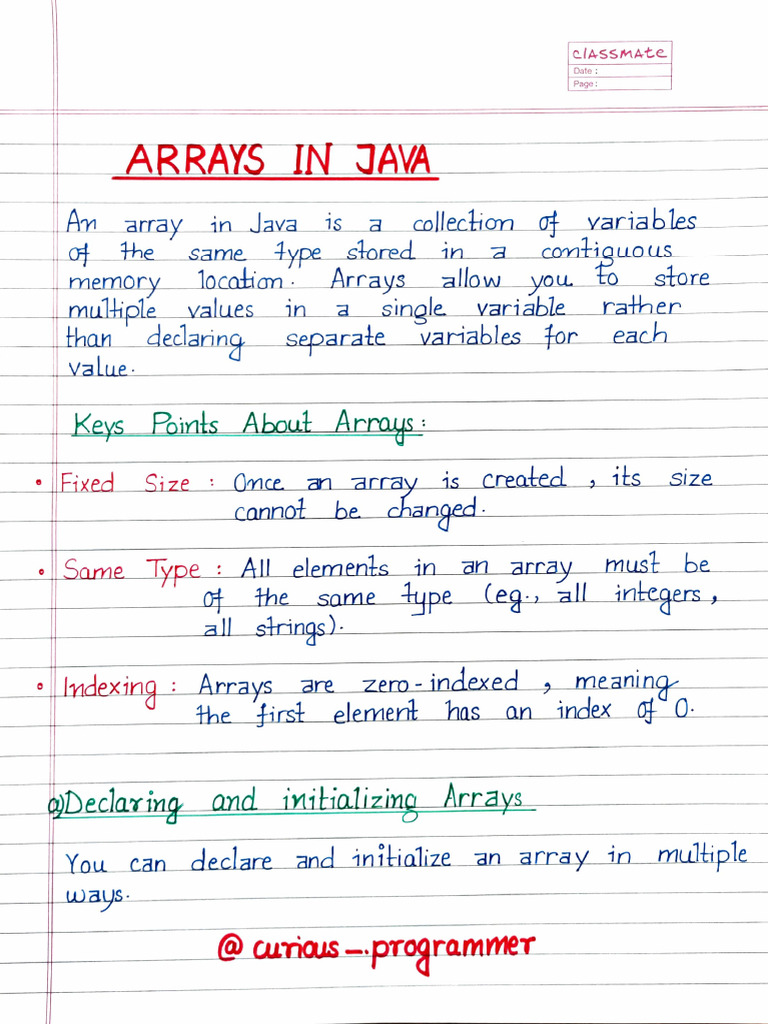 classmate
Date :
Page :
ARRAYS IN JAVA
An array in Java is a collection of variables
of the same type stored in a contiguous
memory location. Arrays allow you to store
multiple values in a single variable rather
than declaring separate variables for each
value.
Keys Points About Arrays :
• Fixed Size : Once an array is created , its size
cannot be changed.
• Same Type : All elements in an array must be
of the same type (eg., all integers ,
all strings).
• Indexing : Arrays are zero-indexed , meaning
the first element has an index of 0.
a) Declaring and initializing Arrays
You can declare and initialize an array in multiple
ways.
@ curious_.programmer